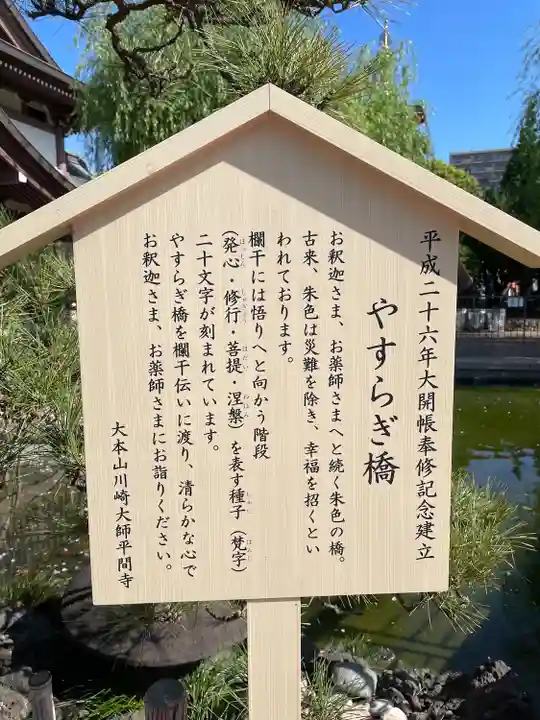 平成二十六年大開帳奉修記念建立
やすらぎ橋
お釈迦さま、お薬師さまへと続く朱色の橋。
古来、朱色は災難を除き、幸福を招くとい
われております。
欄干には悟りへと向かう階段
（発心・修行・菩提・涅槃）を表す種子（梵字）
ほっしん しゅぎょう ぼだい ねはん しゅじ ぼんじ
二十文字が刻まれています。
やすらぎ橋を欄干伝いに渡り、清らかな心で
お釈迦さま、お薬師さまにお詣りください。
大本山川崎大師平間寺